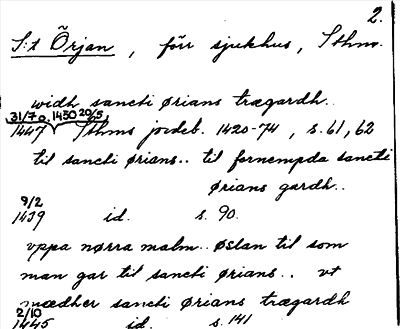 2.
S:t Örjan, förr sjukhus, Sthm.
widh sancti ørians trægardh..
31/7 o. 1450 20/5,
1447 Sthms jordeb. 1420-74, s. 61, 62
til sancti ørians.. til fornempda sancti
ørians gardh..
9/2
1439 id. s. 90.
vppa nørra malm.. øslan til som
man gar til sancti ørians.. vt
mædher sancti ørians trægardh
2/10
1445 id. s. 141